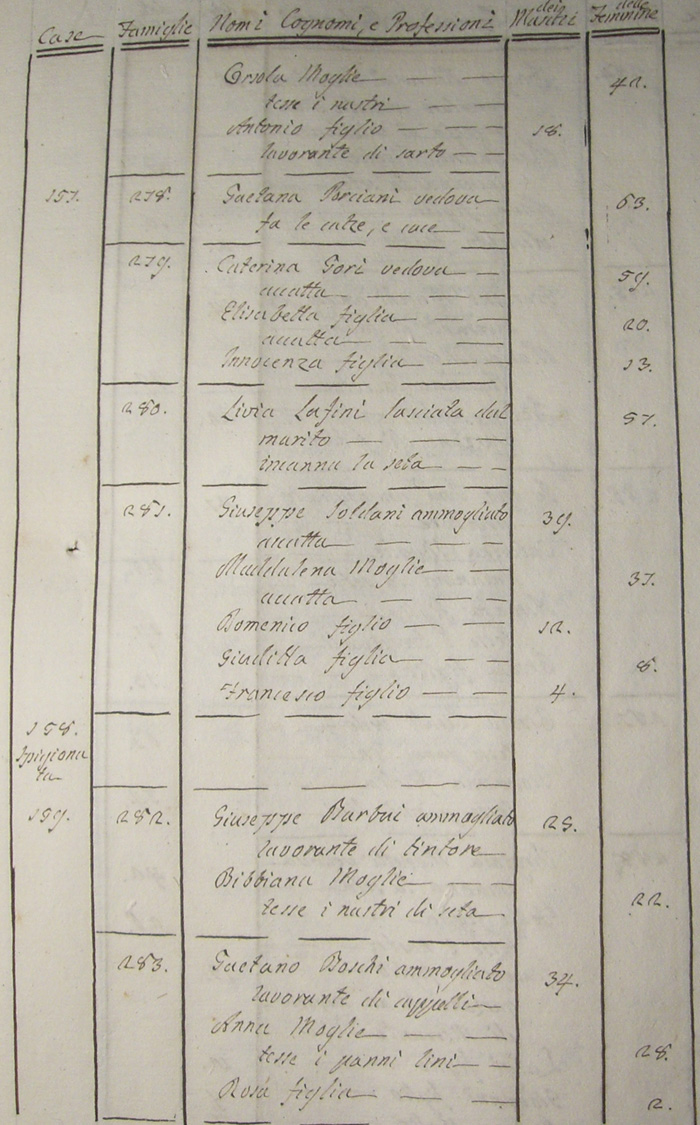 Case Famiglie Nomi Cognomi, e Professioni dei Maschi delle Femmine
Orsola Moglie 42.
tesse i nastri
Antonio figlio 18.
lavorante di sarto
157. 278. Gaetana Porciani vedova 63.
fa le calze, e cuce
279. Caterina Gori vedova 59.
accatta
Elisabetta figlia 20.
accatta
Innocenza figlia 13.
280. Livia Lafini lasciata dal 57.
marito
incanna la seta
281. Giuseppe Soldani ammogliato 39.
accatta
Maddalena Moglie 37.
accatta
Domenico figlio 12.
Giuditta figlia 8.
Francesco figlio 4.
158.
Spigiona
ta
159. 282. Giuseppe Barbui ammogliato 25.
lavorante di tintore
Bibbiana Moglie 22.
tesse i nastri di seta
283. Gaetano Boschi ammogliato 34.
lavorante di cappelli
Anna Moglie 28.
tesse i panni lini
Rosa figlia 2.